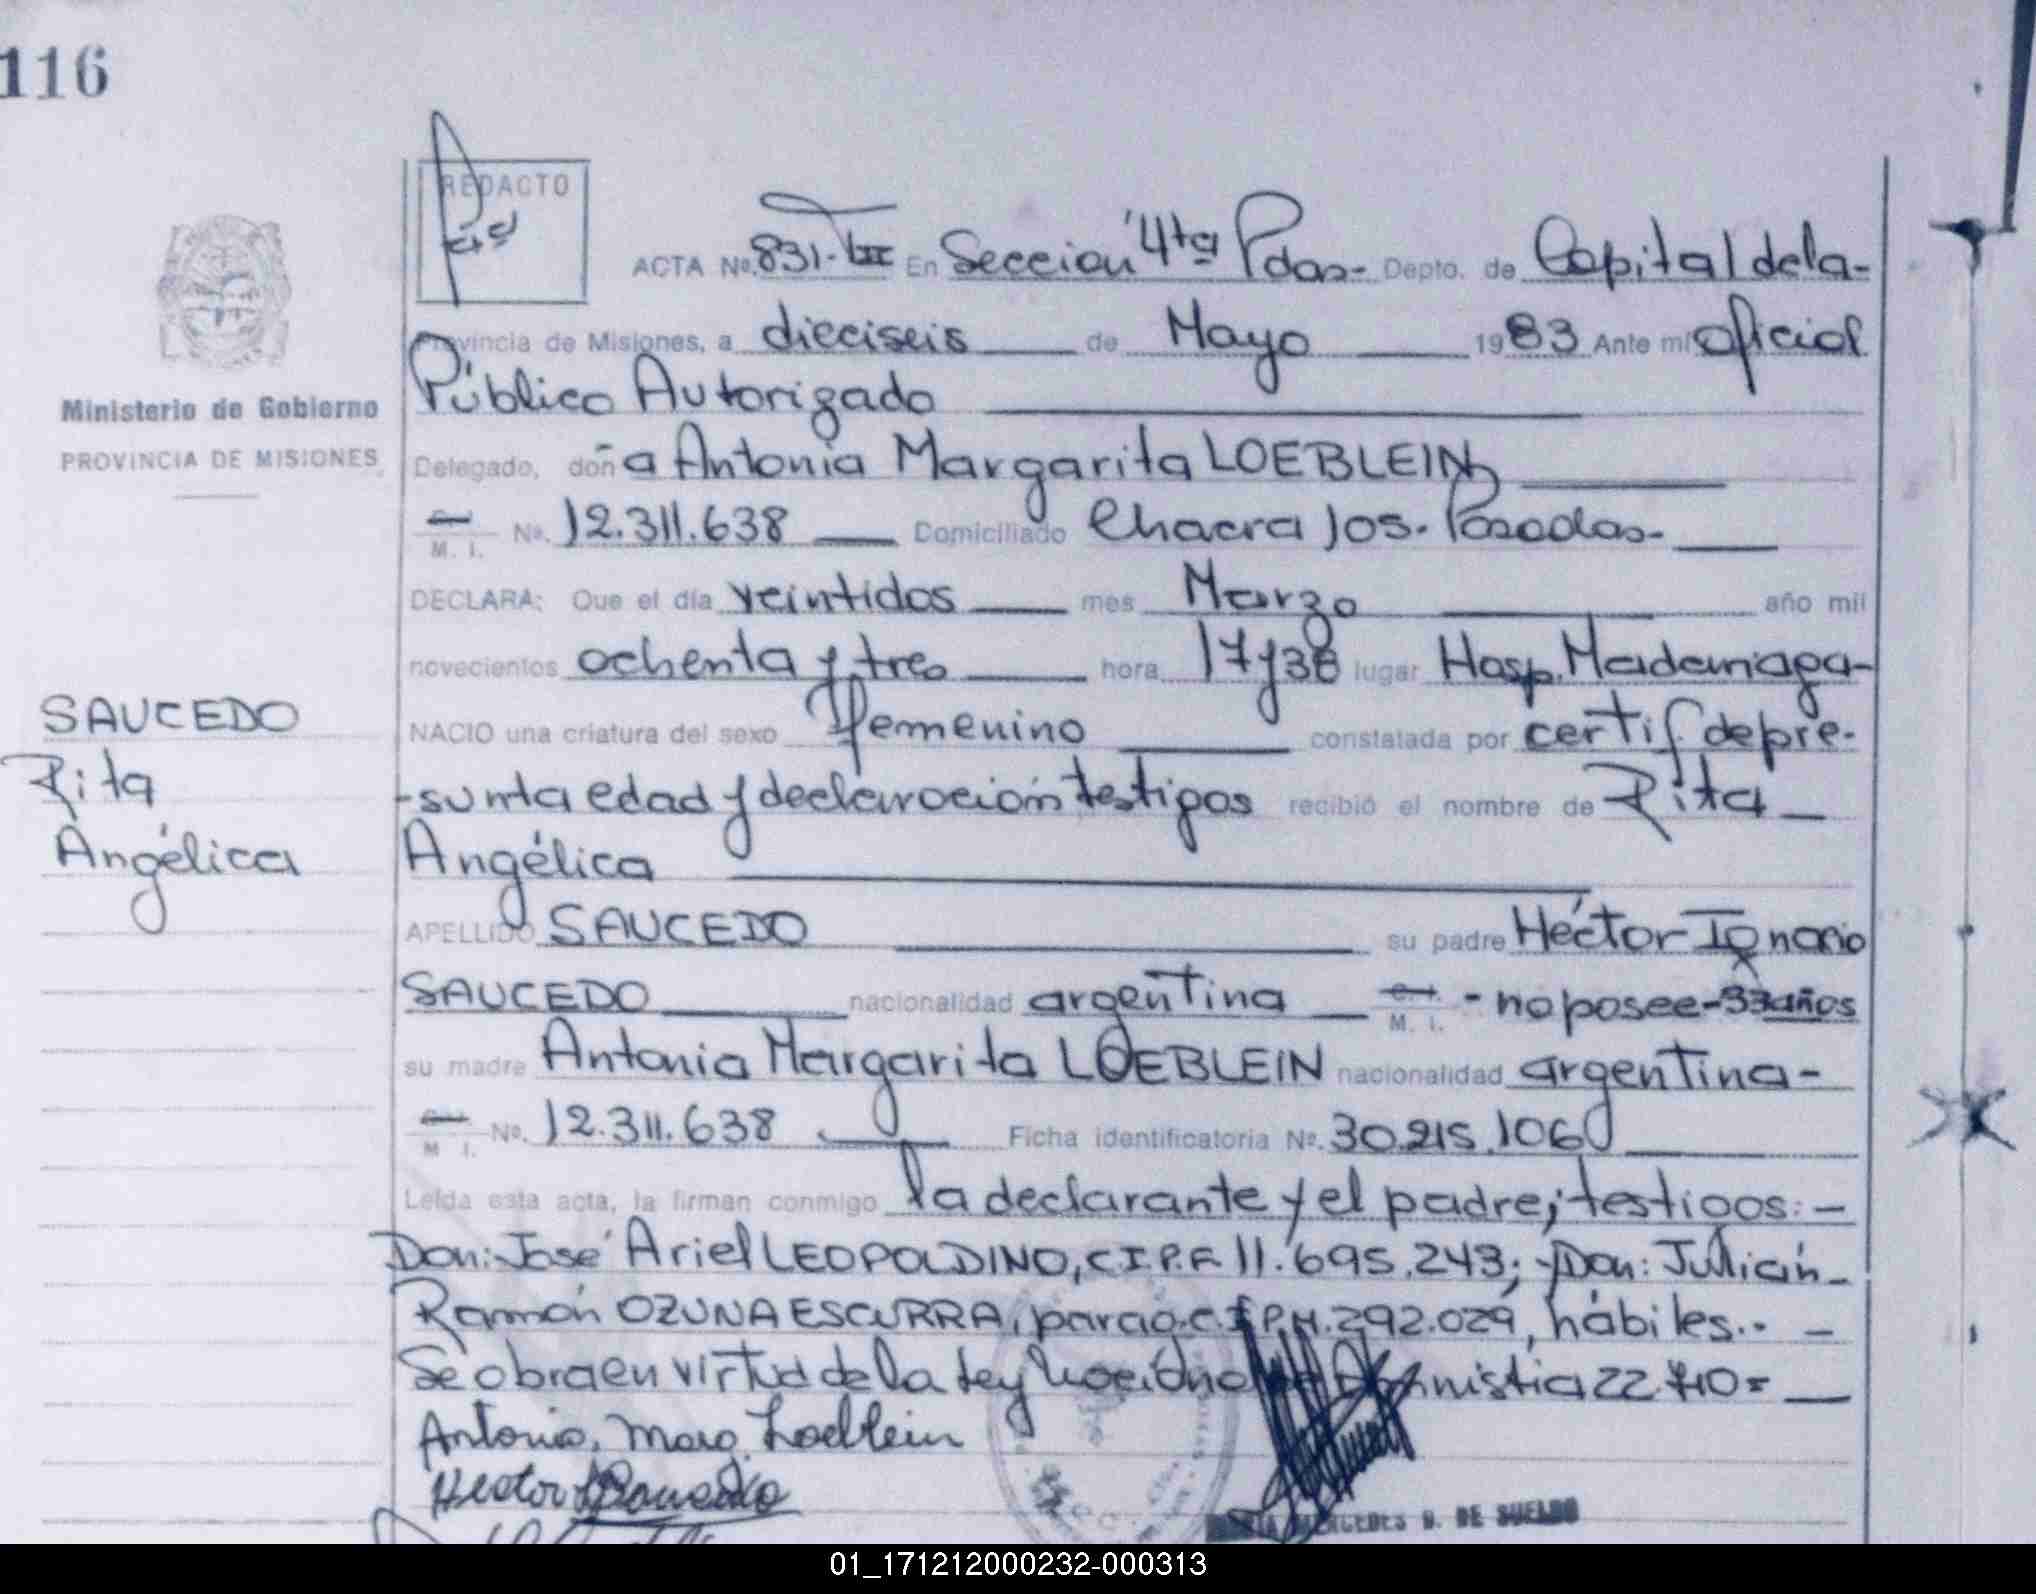 116
REDACTO
ACTA Nº 831- En Sección 4ta Pdas- Depto. de Capital de la-
Provincia de Misiones, a dieciseis de Mayo 1983 Ante mí oficial
Público Autorizado
Ministerio de Gobierno
PROVINCIA DE MISIONES
Delegado, doña Antonia Margarita LOEBLEIN
M. I. Nº. 12.311.638 Domiciliado Chacra 105. Posadas-
DECLARA: Que el día veintidos mes Marzo año mil
novecientos ochenta y tres hora 17y30 lugar Hosp. Madariaga-
SAUCEDO
Rita
Angélica
NACIO una criatura del sexo femenino constatada por certif de pre-
-sunta edad y declaración testigos recibió el nombre de Rita
Angélica
APELLIDO SAUCEDO su padre Héctor Ignacio
SAUCEDO nacionalidad argentina M. I. -no posee-33 años
su madre Antonia Margarita LOEBLEIN nacionalidad argentina-
M I. Nº. 12.311.638 Ficha identificatoria Nº. 30.215.106
Leída esta acta, la firman conmigo la declarante y el padre; testigos:-
Don: José Ariel LEOPOLDINO, C.I.P.F 11.695.243; y Don: Julián-
Ramón OZUNA ESCURRA, parag. C.I.P.M. 292.029, hábiles.. -
Se obra en virtud de la Ley Nacional Amnistia 22.410=
Antonia, Marg. Loeblein
Hector I Saucedo
MERCEDES DE SUELDO
01_171212000232-000313